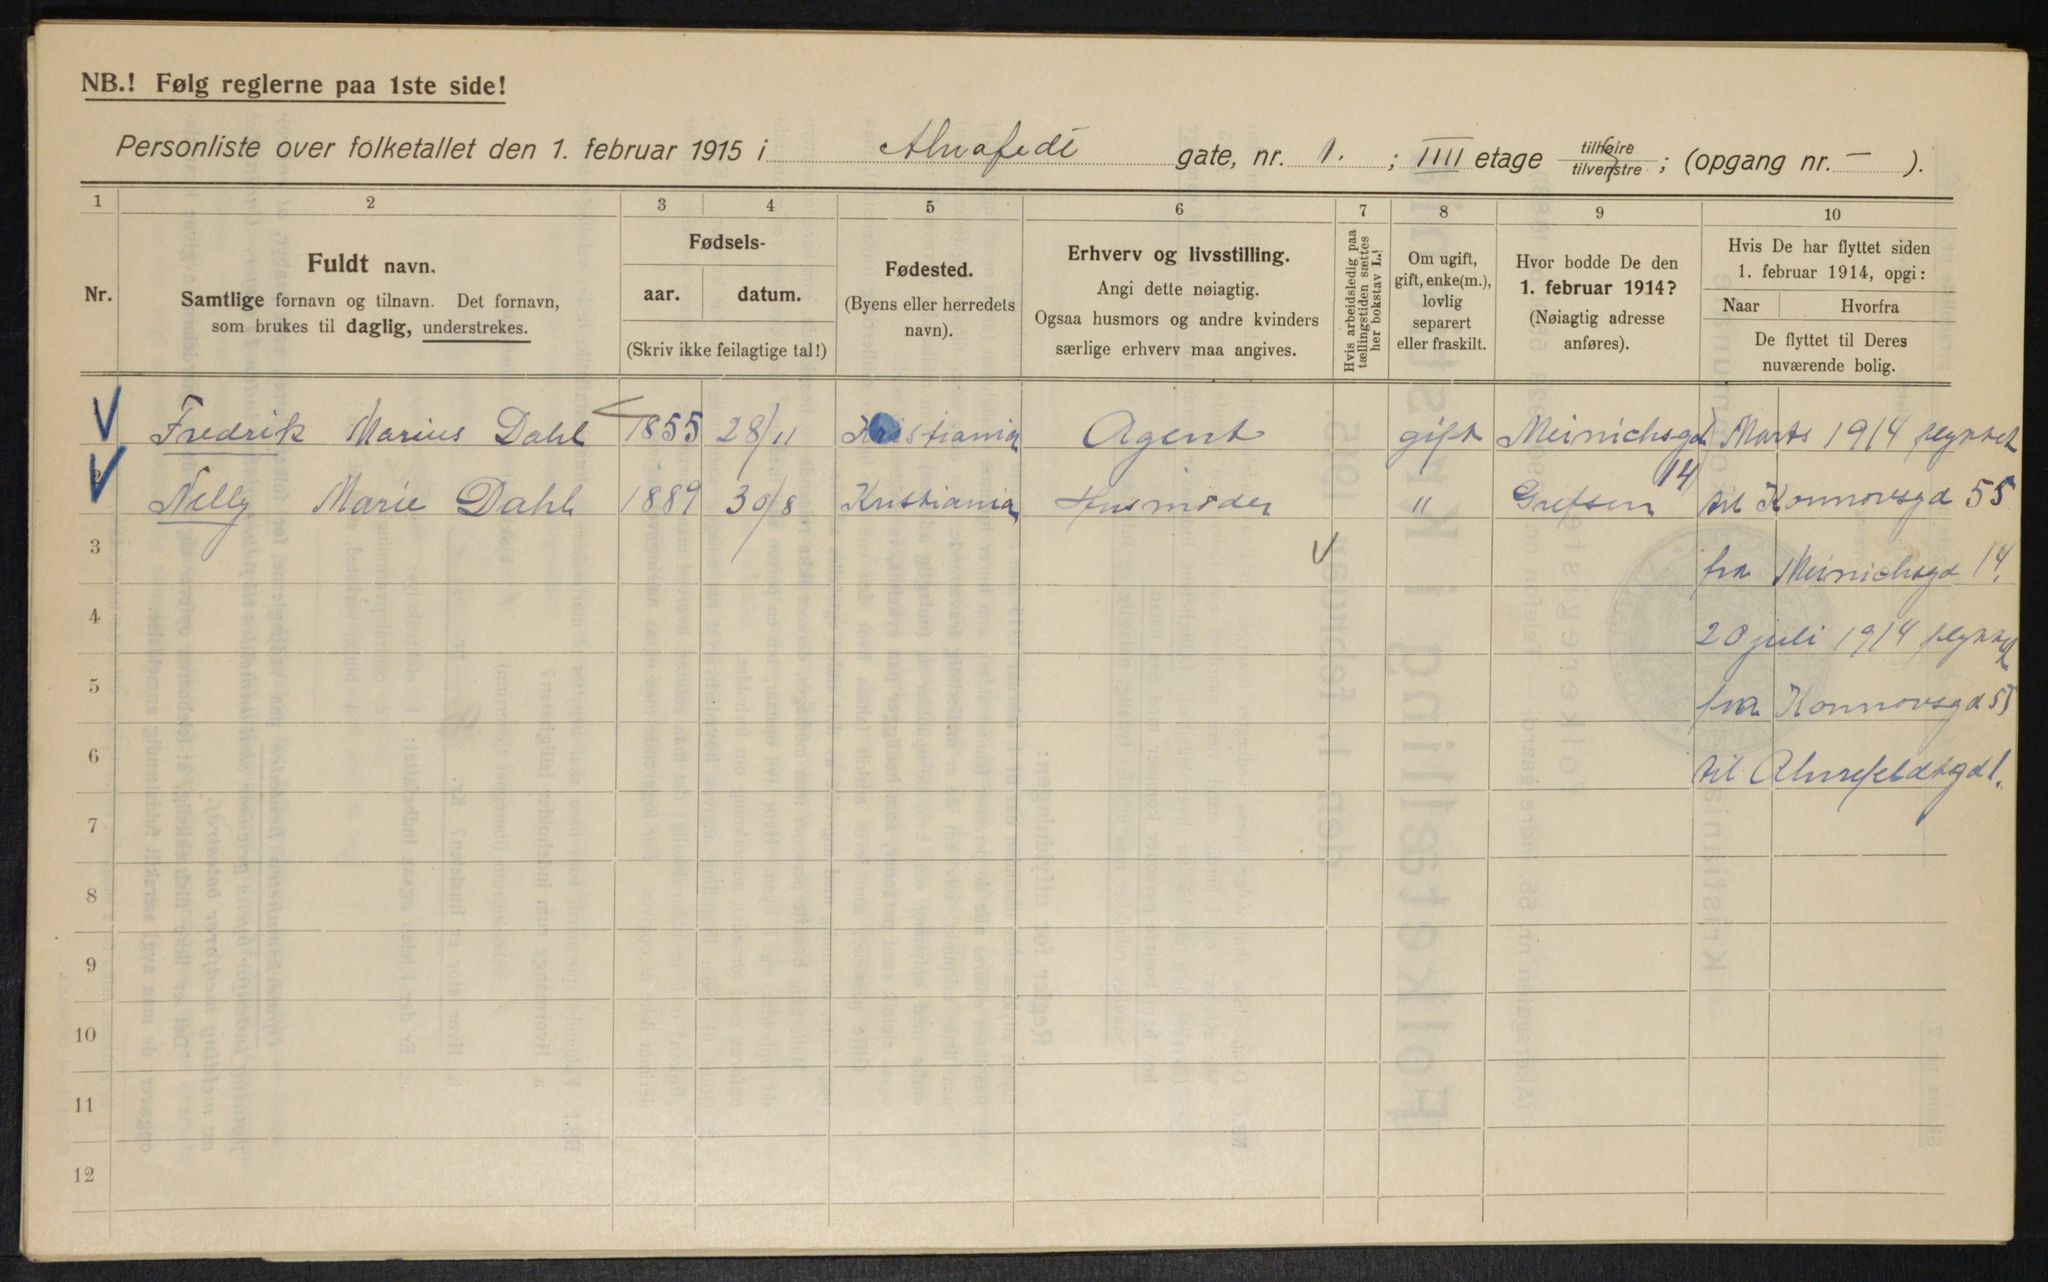 NB.! Følg reglerne paa 1ste side!
Personliste over folketallet den 1. februar 1915 i Alnafedt gate, nr. 1. ; IIII etage tilhøire tilvenstre ; (opgang nr. — ).
1 2 3 4 5 6 7 8 9 10
Nr.
Fuldt navn.
Samtlige fornavn og tilnavn. Det fornavn,
som brukes til daglig, understrekes.
Fødsels-
aar. datum.
(Skriv ikke feilagtige tal!)
Fødested.
(Byens eller herredets
navn).
Erhverv og livsstilling.
Angi dette nøiagtig.
Ogsaa husmors og andre kvinders
særlige erhverv maa angives.
Hvis arbeidsledig paa
tællingstiden sættes
her bokstav L.!
Om ugift,
gift, enke(m.),
lovlig
separert
eller fraskilt.
Hvor bodde De den
1. februar 1914?
(Nøiagtig adresse
anføres).
Hvis De har flyttet siden
1. februar 1914, opgi:
Naar Hvorfra
De flyttet til Deres
nuværende bolig.
Fredrik Marius Dahl 1855 28/11 Kristiania Agent gift Meinichsgd 14 Marts 1914 flyttet
2 Nelly Marie Dahl 1889 30/8 Kristiania Husmoder " Grefsen til Konnovsgd 55
3 fra Meinichsgd 14.
4 20 juli 1914 flyttet
5 fra Konnovsgd 55
6 til Ahnefeldtgd 1.
7
8
9
10
11
12